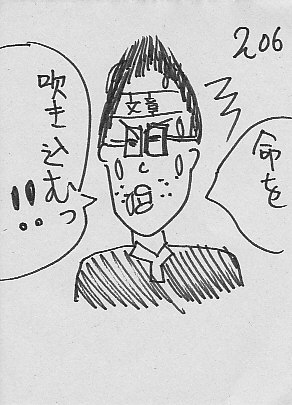 206
命を
吹き込むっ!!
文章